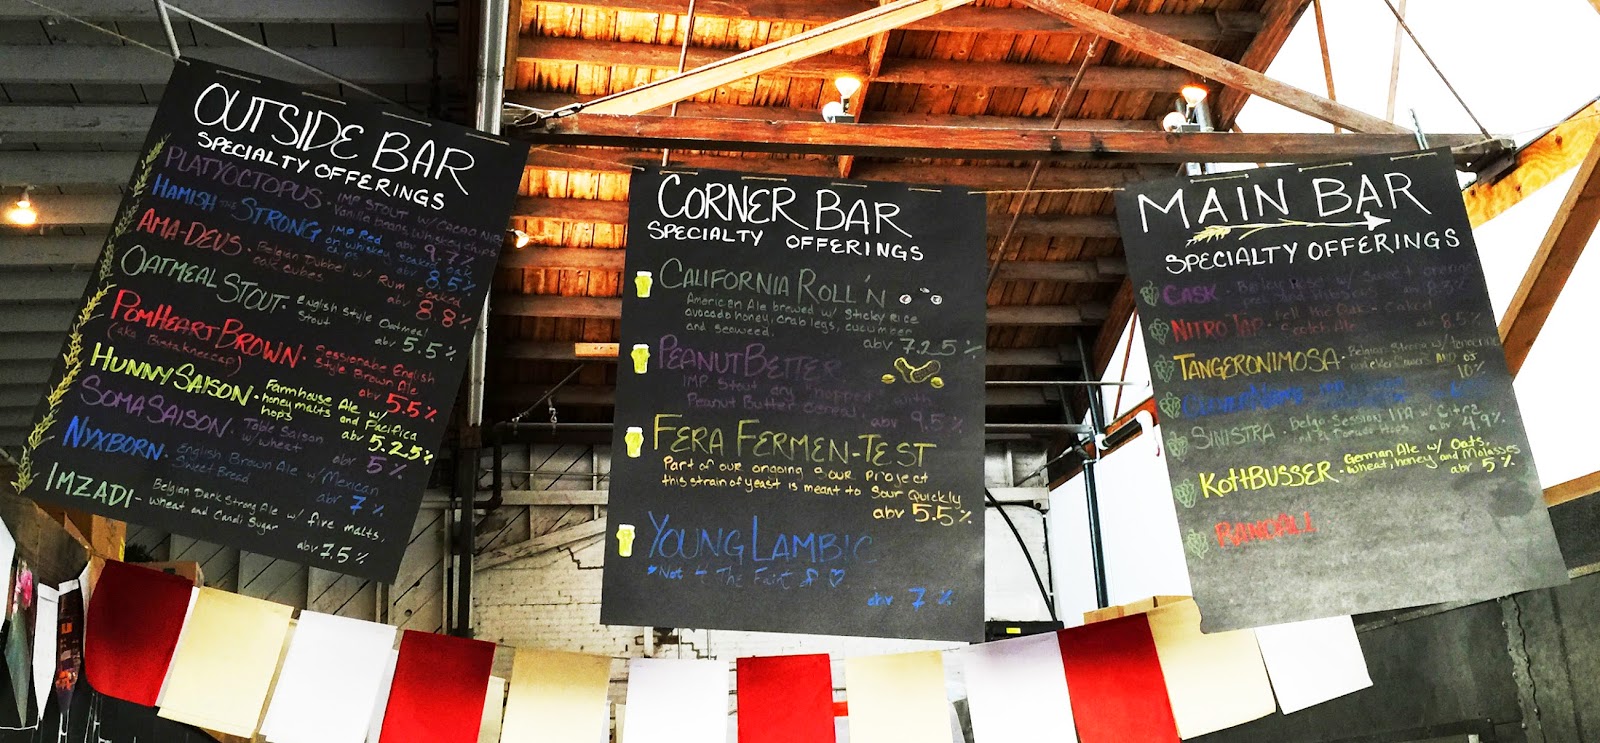 OUTSIDE BAR
SPECIALTY OFFERINGS
PLATYOCTOPUS - IMP STOUT W/ CACAO NIBS
Vanilla beans whiskey chips
abv 9.7%
HAMISH THE STRONG IMP Red
on whiskey soaked oak
chips abv 8.5%
AMA-DEUS - Belgian Dubbel w/ Rum soaked
oak cubes abv 8.8%
OATMEAL STOUT - English Style Oatmeal
Stout abv 5.5%
POMHEART BROWN - Sessionable English
(aka Buttakneecap) Style Brown Ale
abv 5.5%
HUNNY SAISON - Farmhouse Ale w/
honey malts and Pacifica
hops abv 5.25%
SOMA SAISON - Table Saison
w/ wheat abv 5%
NYXBORN - English Brown Ale w/ Mexican
Sweet Bread abv 7%
IMZADI - Belgian Dark Strong Ale w/ five malts,
wheat and Candi Sugar
abv 7.5%
CORNER BAR
SPECIALTY OFFERINGS
CALIFORNIA ROLL'N
American Ale brewed w/ Sticky Rice
avocado honey, crab legs, cucumber
and seaweed. abv 7.25%
PEANUT BETTER
IMP Stout dry "hopped" with
Peanut Butter Cereal abv 9.5%
FERA FERMEN-TEST
Part of our ongoing sour project
this strain of yeast is meant to Sour Quickly
abv 5.5%
YOUNG LAMBIC
Not 4 The Faint of ♡
abv 7%
MAIN BAR
SPECIALTY OFFERINGS
CASK - w/ Sweet orange
peel
NITRO TAP - Fell the Oak - Cask
Scotch Ale abv 8.5%
TANGERONIMOSA - Belgian Strong w/ tangerine
AND OJ
10%
SINISTRA - Belgo Session IPA w/ Citra
hops abv 4.9%
KOTTBUSSER - German Ale w/ Oats,
wheat, honey and Molasses
abv 5%
RANDALL